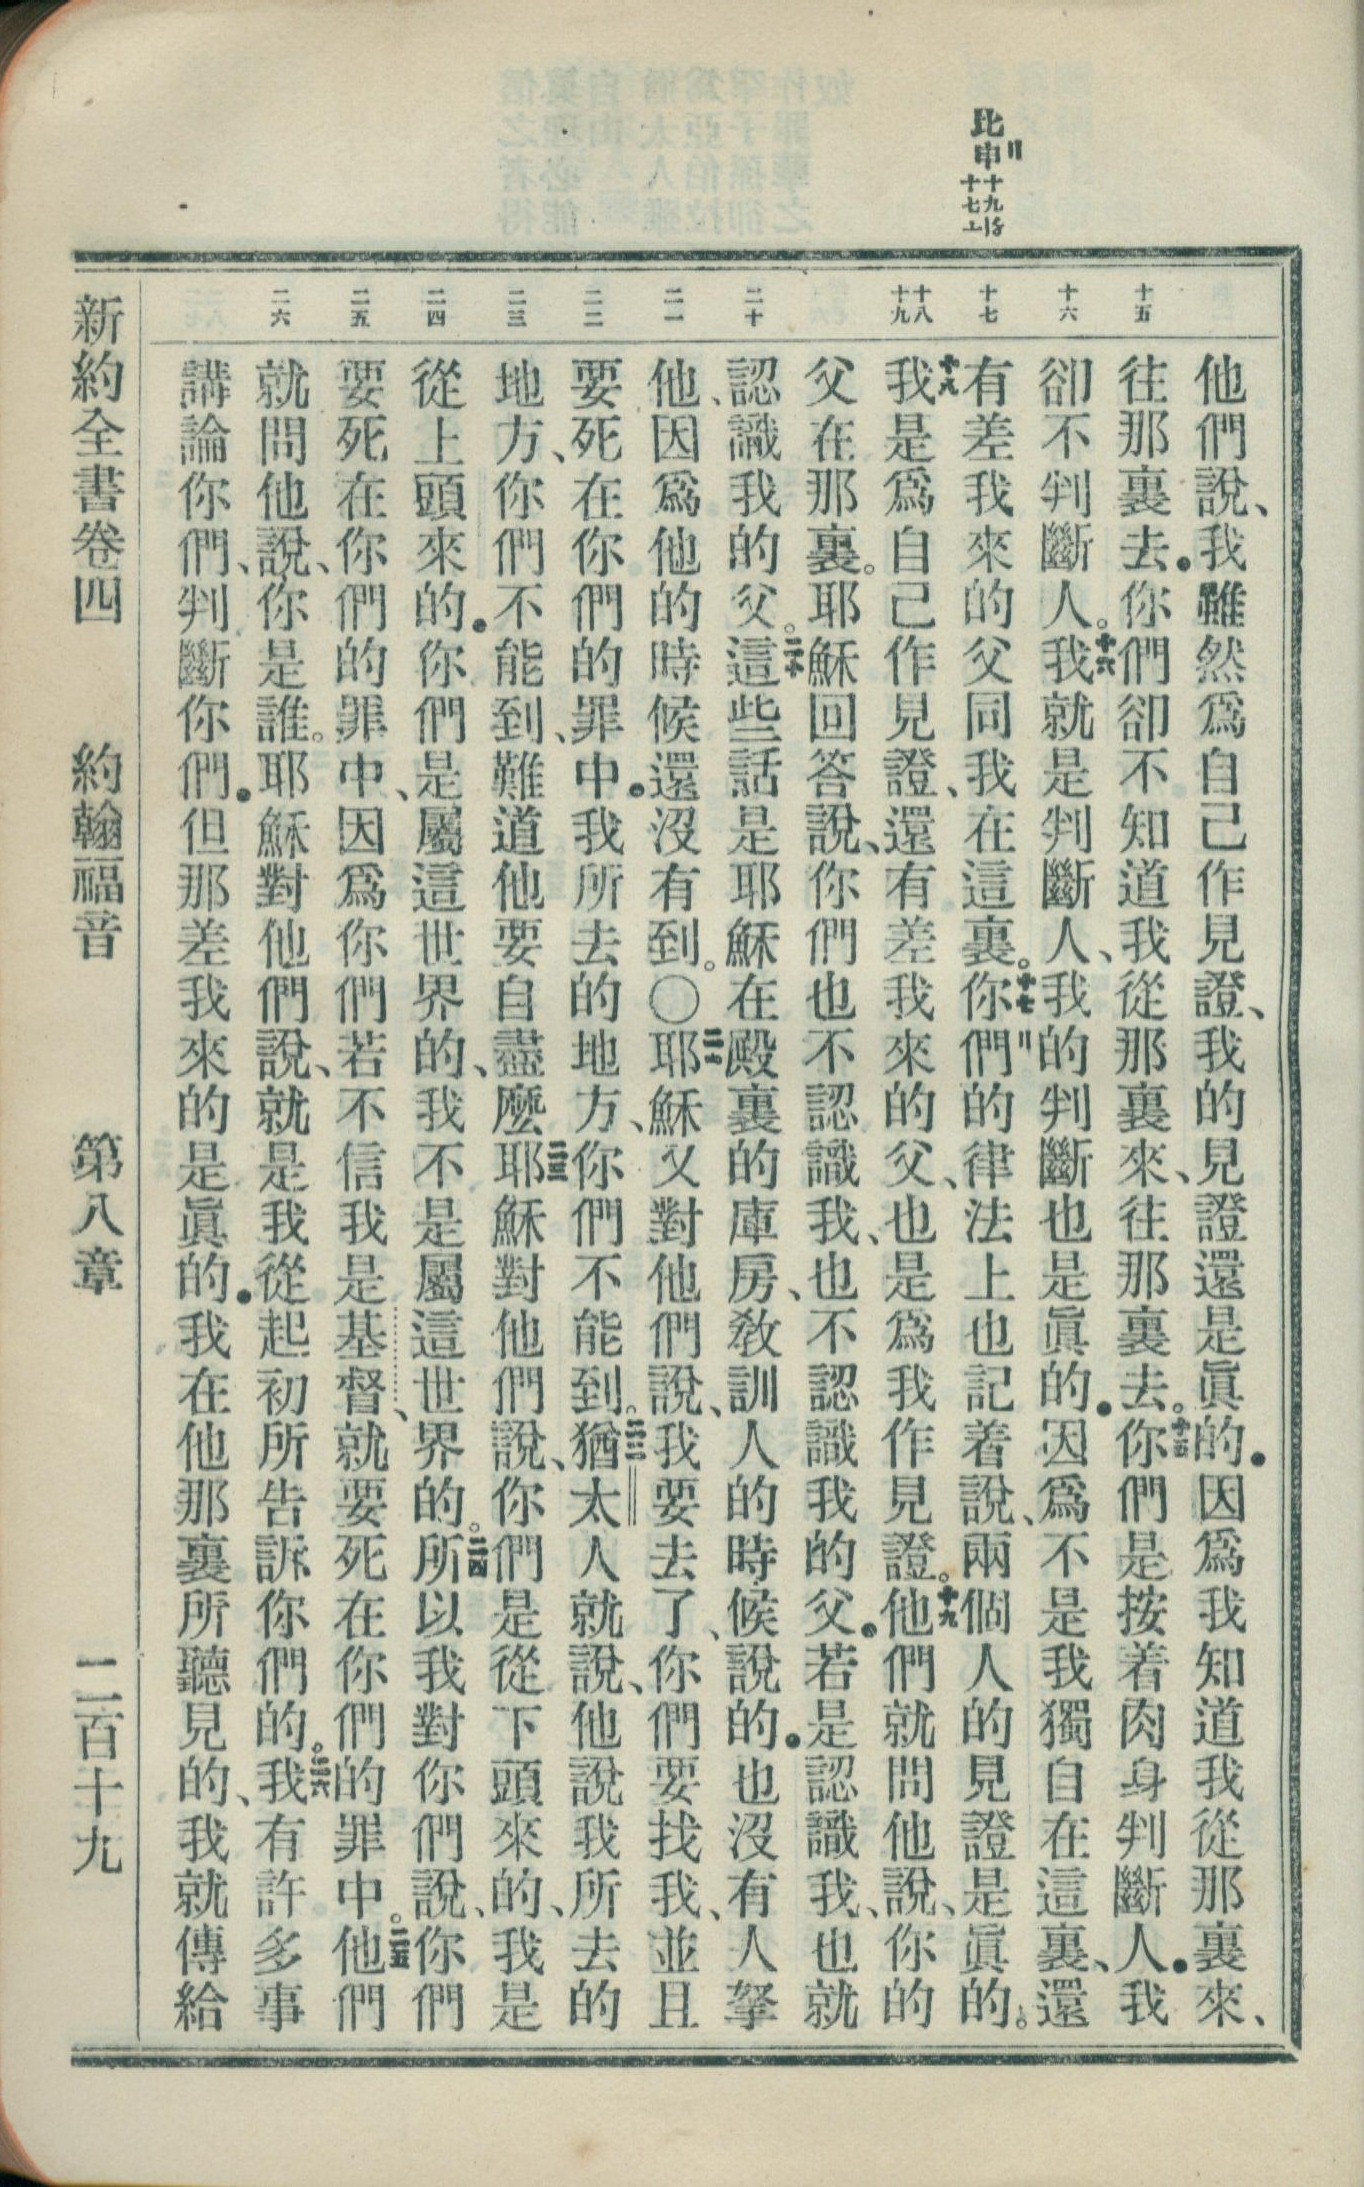 比申十九15
十七上
十五
十六
十七
十八
十九
二十
二一
二二
二三
二四
二五
二六
他們說、我雖然爲自己作見證、我的見證還是眞的•因爲我知道我從那裏來、
往那裏去•你們卻不知道我從那裏來、往那裏去。十五你們是按着肉身判斷人•我
卻不判斷人。十六我就是判斷人、我的判斷也是眞的•因爲不是我獨自在這裏、還
有差我來的父同我在這裏。十七你們的律法上也記着說、兩個人的見證是眞的。
十八我是爲自己作見證、還有差我來的父、也是爲我作見證。十九他們就問他說、你的
父在那裏。耶穌回答說、你們也不認識我、也不認識我的父•若是認識我、也就
認識我的父。二十這些話是耶穌在殿裏的庫房、教訓人的時候說的•也沒有人拏
他、因爲他的時候還沒有到。〇二一耶穌又對他們說、我要去了、你們要找我、並且
要死在你們的罪中•我所去的地方、你們不能到。二二猶太人就說、他說我所去的
地方、你們不能到、難道他要自盡麼二三耶穌對他們說、你們是從下頭來的、我是
從上頭來的•你們是屬這世界的、我不是屬這世界的。二四所以我對你們說、你們
要死在你們的罪中、因爲你們若不信我是基督、就要死在你們的罪中。二五他們
就問他說、你是誰。耶穌對他們說、就是我從起初所告訴你們的。二六我有許多事
講論你們、判斷你們•但那差我來的是眞的•我在他那裏所聽見的、我就傳給
新約全書卷四　約翰福音　第八章　二百十九